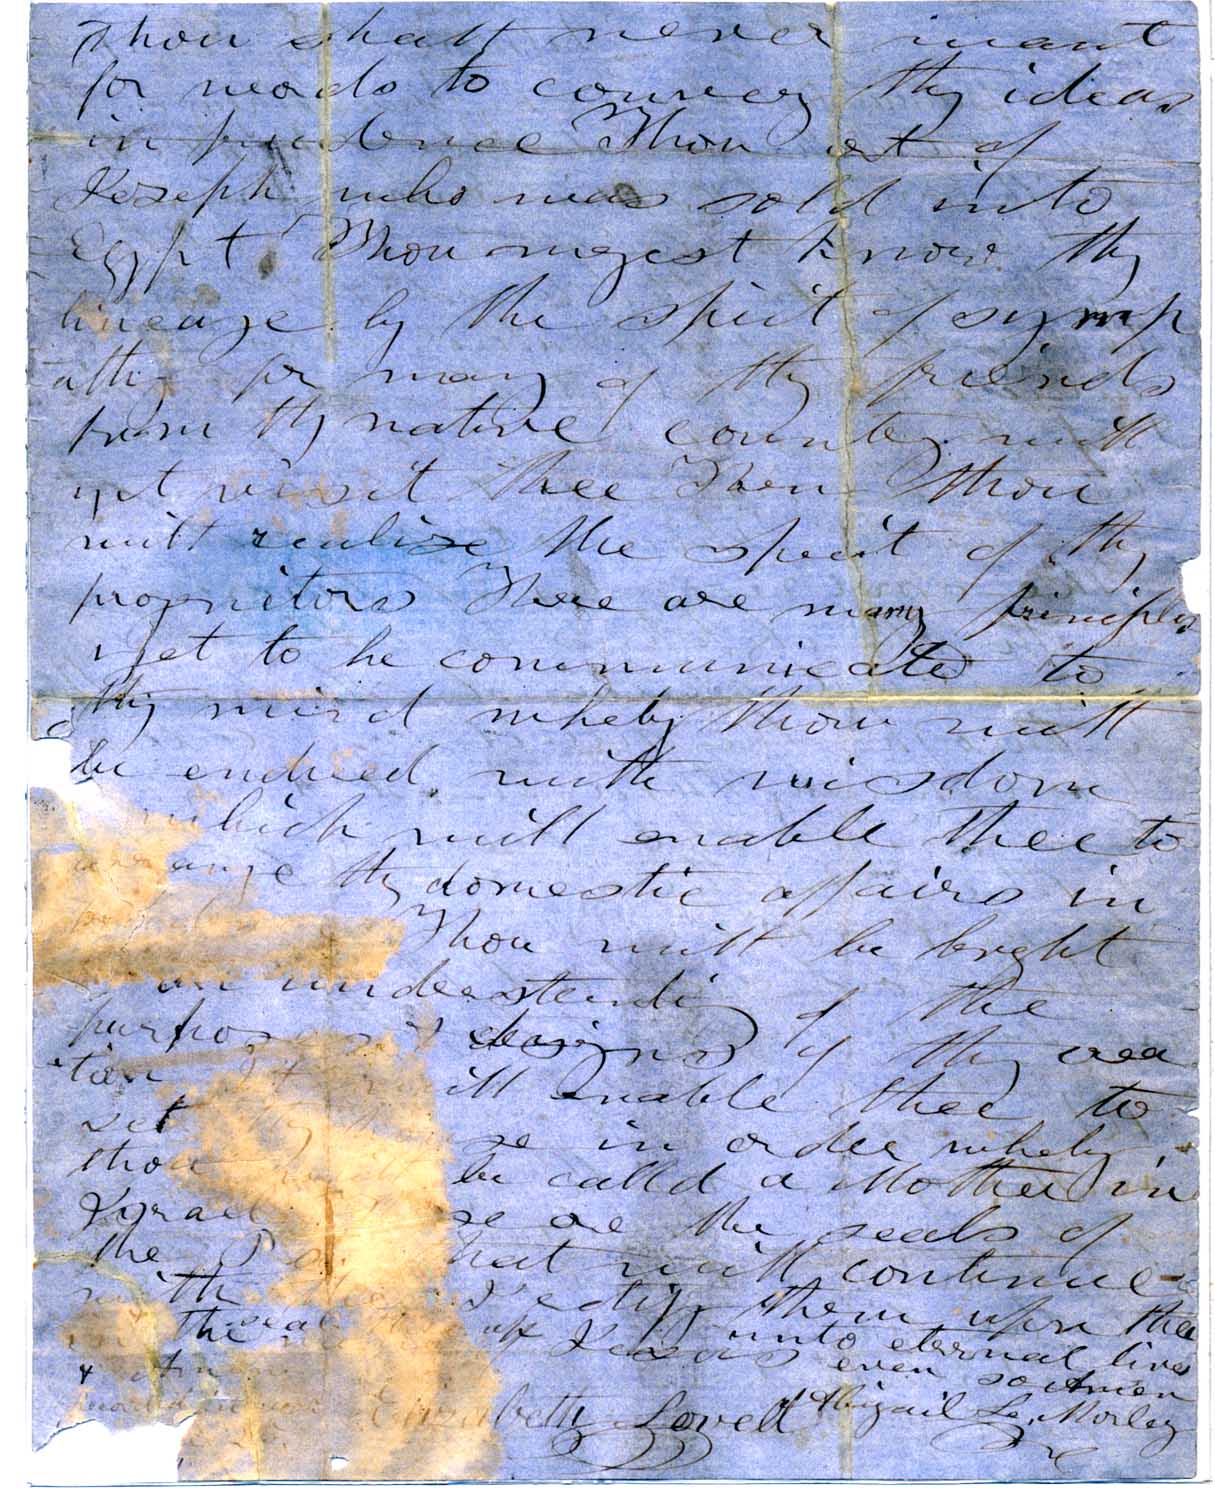 Thou shalt never want
for words to convey thy ideas
in prudence Thou art of
Joseph who was sold into
Egypt Thou mayest know thy
lineage by the spirit of symp
athy for many of thy friends
from thy native country will
yet visit thee Then thou
wilt realise the spirit of thy
progenitors There are many principles
yet to be communicated to
thy mind wheby thou wilt
be endued with wisdom
which will enable thee to
arrange thy domestic affairs in
Thou wilt be bright
an understanding of the
purposes & designs of thy crea
tion It will enable thee to
set thy house in order wheby
thou shalt be called a Mother in
Israel these are the seals of
the that will continue
with thee I'e them upon thee
seal thee up unto eternal lives
in the of Jesus even so Amen
& Amen
Elizabeth Lovell Abigail Le, Morley